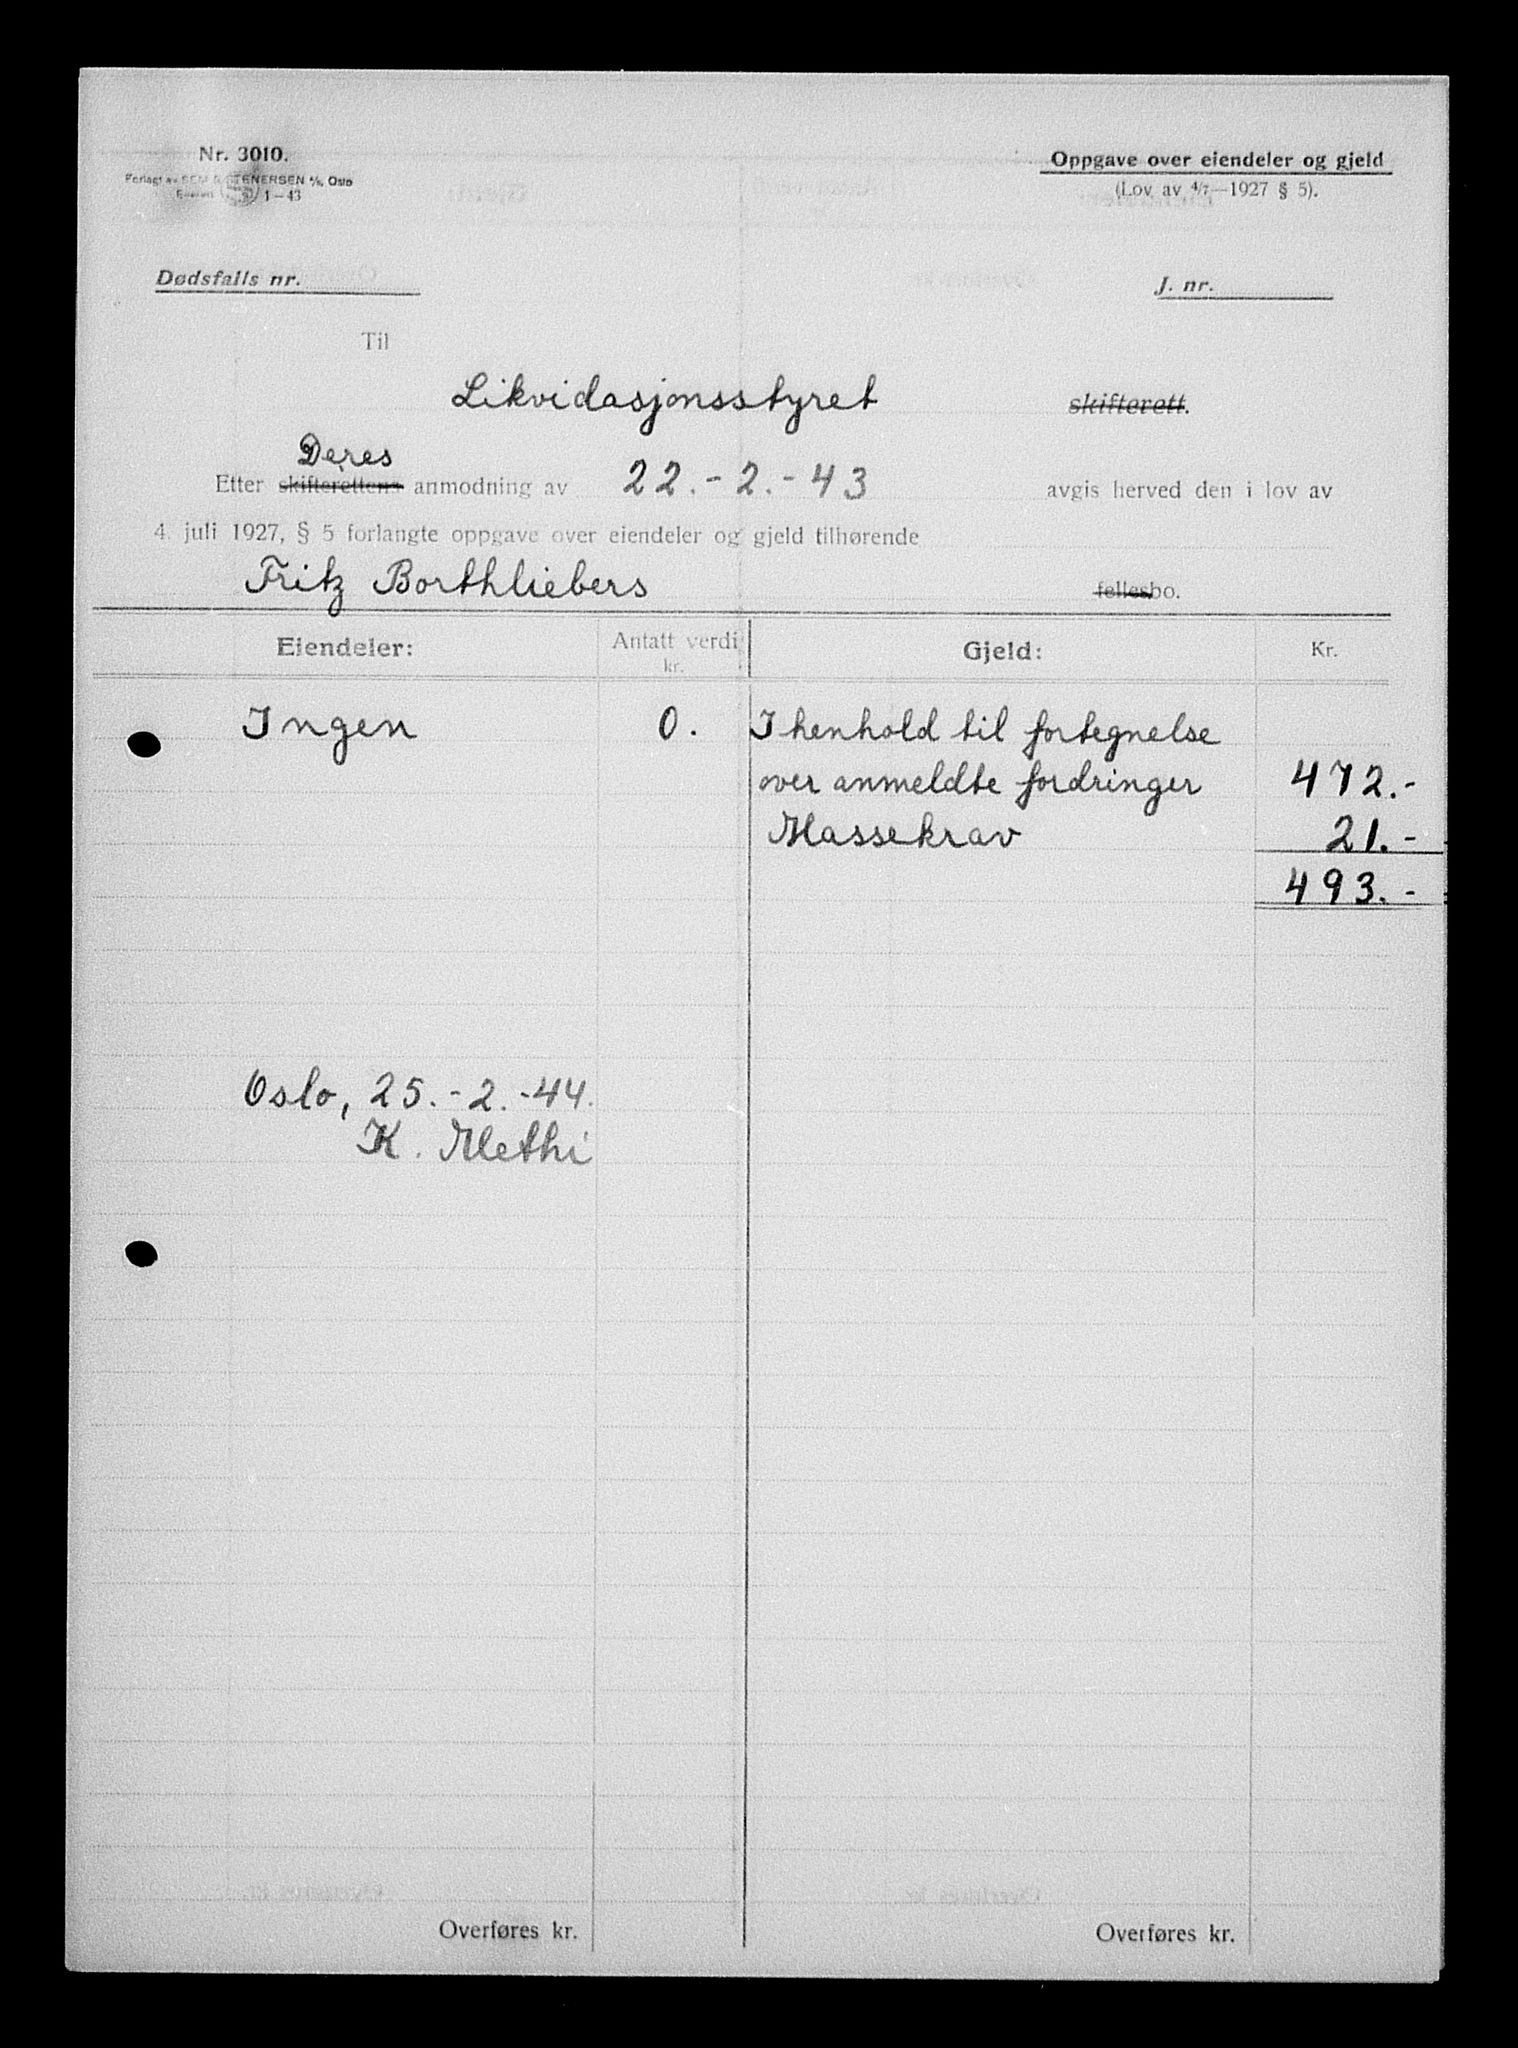 Nr. 3010.
Forlagt av SEM & STENERSEN A/S, Oslo
1-43
Oppgave over eiendeler og gjeld
(Lov av 4/7—1927 § 5).
Dødsfalls nr.
J. nr.
Til
Likvidasjonsstyret skifterett.
Deres
Etter skifterettens anmodning av 22.-2.-43 avgis herved den i lov av
4. juli 1927, § 5 forlangte oppgave over eiendeler og gjeld tilhørende
Fritz Borthliebers fellesbo.
Eiendeler: Antatt verdi kr. Gjeld: Kr.
Ingen 0. I henhold til fortegnelse
over anmeldte fordringer 472.-
Massekrav 21.-
493.-
Oslo, 25.-2.-44.
K. Methi
Overføres kr. Overføres kr.